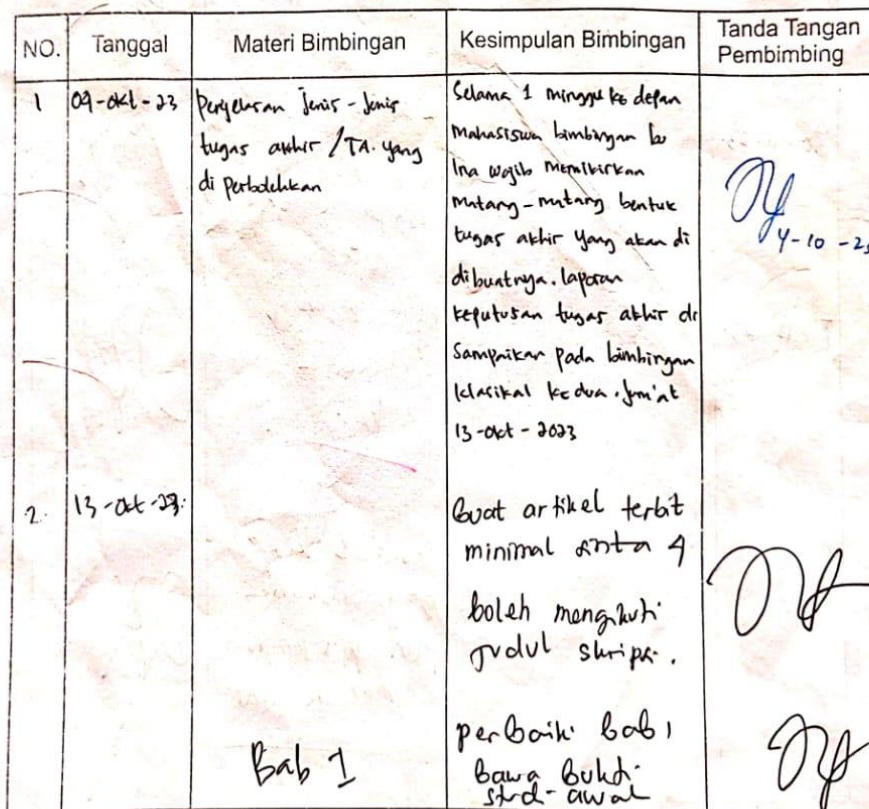 NO.
Tanggal
Materi Bimbingan
Kesimpulan Bimbingan
Tanda Tangan
Pembimbing
1
09-okt-23
Penjelasan Jenis-Jenis
tugas akhir / TA. yang
di perbolehkan
Selama 1 minggu ke depan
mahasiswa bimbingan bu
Ina wajib memikirkan
matang-matang bentuk
tugas akhir yang akan di
dibuatnya. laporan
keputusan tugas akhir di
sampaikan pada bimbingan
klasikal kedua. jum'at
13-okt-2023
4-10-23
2.
13-okt-23.
Buat artikel terbit
minimal sinta 4
boleh mengikuti
judul skripsi.
Bab 1
perbaiki bab 1
bawa bukti
stud-awal